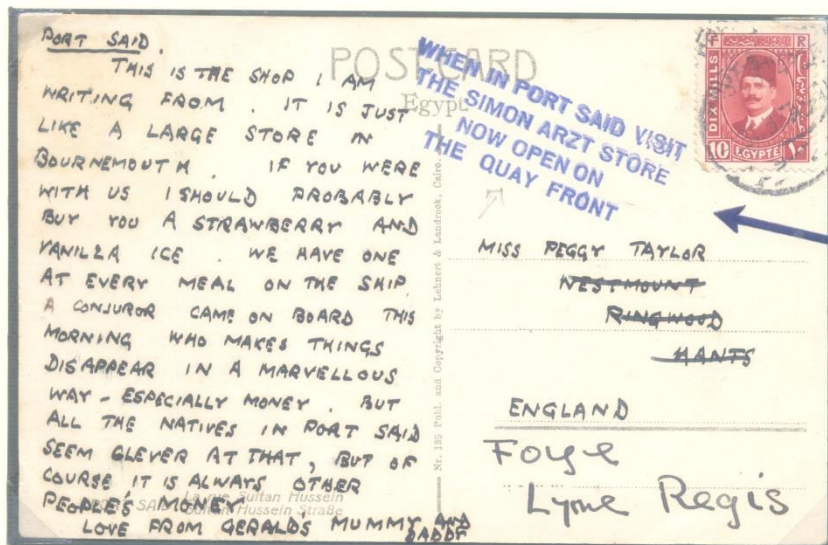 PORT SAID.
THIS IS THE SHOP I AM
WRITING FROM. IT IS JUST
LIKE A LARGE STORE IN
BOURNEMOUTH. IF YOU WERE
WITH US I SHOULD PROBABLY
BUY YOU A STRAWBERRY AND
VANILLA ICE. WE HAVE ONE
AT EVERY MEAL ON THE SHIP.
A CONJUROR CAME ON BOARD THIS
MORNING WHO MAKES THINGS
DISAPPEAR IN A MARVELLOUS
WAY - ESPECIALLY MONEY. BUT
ALL THE NATIVES IN PORT SAID
SEEM CLEVER AT THAT, BUT OF
COURSE IT IS ALWAYS OTHER
PEOPLE'S MONEY
LOVE FROM GERALD'S MUMMY AND
DADDY
SAID
La rue Sultan Hussein
Sultan Hussein Straße
POSTCARD
Egypt
Nr. 139 Publ. and Copyright by Lehnert & Landrock, Cairo.
WHEN IN PORT SAID VISIT
THE SIMON ARZT STORE
NOW OPEN ON
THE QUAY FRONT
DIX MILLS
10 EGYPTE ١٠
MISS PEGGY TAYLOR
WESTMOUNT
RINGWOOD
HANTS
ENGLAND
Lyme Regis